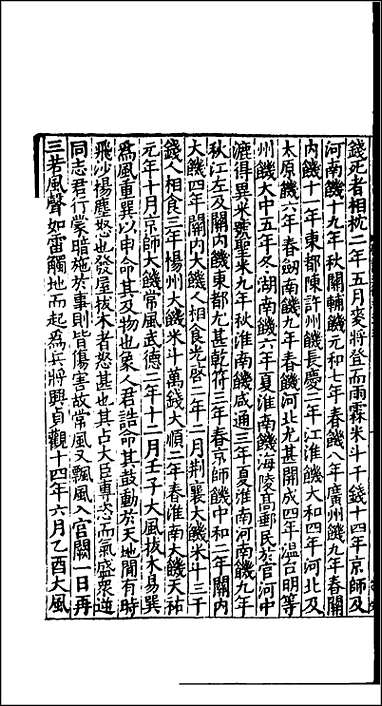 錢死者相枕二年五月麥將登而雨霖米斗千錢十四年京師及
河南饑十九年秋關輔饑元和七年春饑八年廣州饑九年春關
內饑十一年東都陳許州饑長慶二年江淮饑大和四年河北及
太原饑六年春劒南饑九年春饑河北尤甚開成四年溫台明等
州饑大中五年冬湖南饑六年夏淮南饑海陵高郵民於官河中
漉得異米號聖米九年秋淮南饑咸通三年夏淮南河南饑九年
秋江左及關內饑東都尤甚乾符三年春京師饑中和二年關內
大饑四年關內大饑人相食光啓二年二月荆襄大饑米斗三千
錢人相食三年楊州大饑米斗萬錢大順二年春淮南大饑天祐
元年十月京師大饑常風武德二年十二月壬子大風拔木易巽
爲風重巽以申命其及物也象人君誥命其鼓動於天地間有時
飛沙揚塵怒也發屋拔木者怒甚也其占大臣專恣而氣盛衆逆
同志君行蒙暗施於事則皆傷害故常風又飄風入宫闕一日再
三若風聲如雷觸地而起爲兵將興貞觀十四年六月乙酉大風